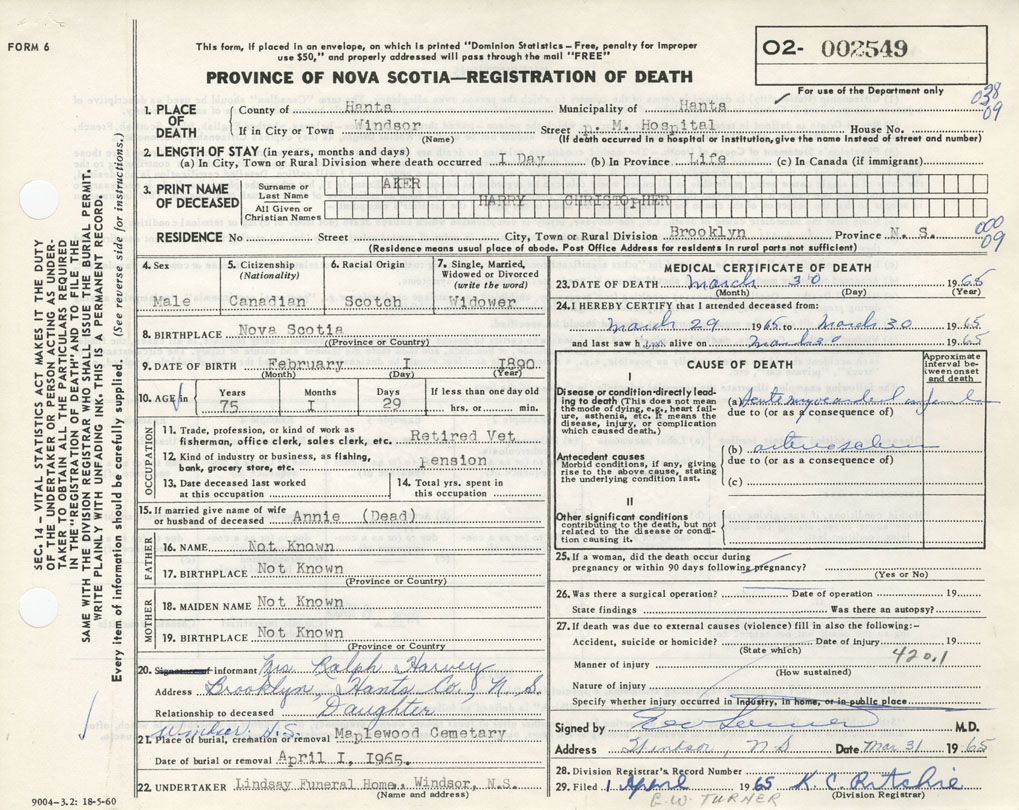 FORM 6
This form, if placed in an envelope, on which is printed "Dominion Statistics – Free, penalty for improper
use $50," and properly addressed will pass through the mail "FREE"
PROVINCE OF NOVA SCOTIA—REGISTRATION OF DEATH
O2- 002549
For use of the Department only
038
09
1. PLACE OF DEATH
County of Hanta Municipality of Hanta
If in City or Town Windsor Street p. M. Hospital House No.
(Name) (If death occurred in a hospital or institution, give the name instead of street and number)
2. LENGTH OF STAY (in years, months and days)
(a) In City, Town or Rural Division where death occurred I Day (b) In Province Life (c) In Canada (if immigrant)
3. PRINT NAME OF DECEASED
Surname or Last Name AKER
All Given or Christian Names HARRY CHRISTOPHER
000
09
RESIDENCE No Street City, Town or Rural Division Brooklyn Province N. S.
(Residence means usual place of abode. Post Office Address for residents in rural parts not sufficient)
4. Sex
Male
5. Citizenship
(Nationality)
Canadian
6. Racial Origin
Scotch
7. Single, Married, Widowed or Divorced
(write the word)
Widower
8. BIRTHPLACE Nova Scotia
(Province or Country)
9. DATE OF BIRTH February I 1890
(Month) (Day) (Year)
10. AGE in
Years Months Days If less than one day old
75 I 29 hrs. or min.
OCCUPATION
11. Trade, profession, or kind of work as
fisherman, office clerk, sales clerk, etc. Retired Vet
12. Kind of industry or business, as fishing,
bank, grocery store, etc. pension
13. Date deceased last worked
at this occupation
14. Total yrs. spent in
this occupation
15. If married give name of wife
or husband of deceased Annie (Dead)
FATHER
16. NAME Not Known
17. BIRTHPLACE Not Known
(Province or Country)
MOTHER
18. MAIDEN NAME Not Known
19. BIRTHPLACE Not Known
(Province or Country)
20. Signature of informant Mrs. Ralph Harvey
Address Brooklyn, Hants Co., N. S.
Relationship to deceased Daughter
Windsor N.S.
21. Place of burial, cremation or removal Maplewood Cemetary
Date of burial or removal April I, 1965.
22. UNDERTAKER Lindsay Funeral Home, Windsor, N.S.
(Name and address)
MEDICAL CERTIFICATE OF DEATH
23. DATE OF DEATH March 30 1965
(Month) (Day) (Year)
24. I HEREBY CERTIFY that I attended deceased from:
March 29 1965 to March 30 1965
and last saw him alive on March 30 1965
CAUSE OF DEATH
Approximate interval between onset and death
I
Disease or condition directly leading to death (This does not mean the mode of dying, e.g., heart failure, asthenia, etc. It means the disease, injury, or complication which caused death.)
(a) Acute myocardial
due to (or as a consequence of)
Antecedent causes
Morbid conditions, if any, giving rise to the above cause, stating the underlying condition last.
(b)
due to (or as a consequence of)
(c)
II
Other significant conditions
contributing to the death, but not related to the disease or condition causing it.
25. If a woman, did the death occur during
pregnancy or within 90 days following pregnancy?
(Yes or No)
26. Was there a surgical operation? Date of operation 19
State findings Was there an autopsy?
27. If death was due to external causes (violence) fill in also the following:-
Accident, suicide or homicide? Date of Injury 19
(State which)
420.1
Manner of injury
(How sustained)
Nature of injury
Specify whether injury occurred in industry, in home, or in public place
Signed by M.D.
Address Windsor, NS Date Mar. 31 1965
28. Division Registrar's Record Number
29. Filed 1 April 1965 K C Ritchie
(Division Registrar)
E.W. TURNER
SEC. 14 – VITAL STATISTICS ACT MAKES IT THE DUTY
OF THE UNDERTAKER OR PERSON ACTING AS UNDER-
TAKER TO OBTAIN ALL THE PARTICULARS REQUIRED
IN THE "REGISTRATION OF DEATH" AND TO FILE THE
SAME WITH THE DIVISION REGISTRAR WHO SHALL ISSUE THE BURIAL PERMIT.
WRITE PLAINLY WITH UNFADING INK. THIS IS A PERMANENT RECORD.
Every item of information should be carefully supplied. (See reverse side for instructions.)
9004-3.2: 18-5-60